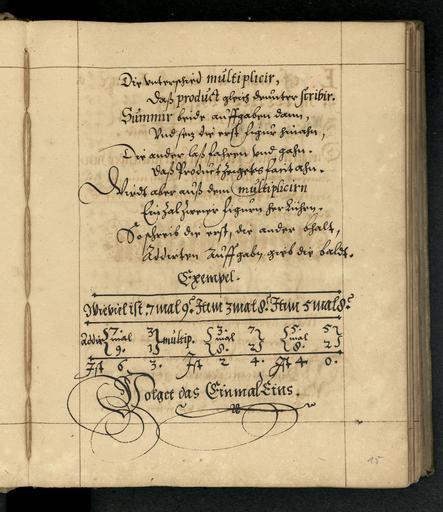 Die vnterschied multiplicir,
Daß product gleich drunter scribir.
Summir beide auffgaben dann,
Vnd setz die erst figur hinahn,
Die ander laß fahren vnd gahn.
Daß Product zeiget es fait ahn.
Wirdt aber auß dem multiplicirn
Ein zal zweyer figurn her rühren.
So schreib die erst, die ander bhalt,
Addirten auffgabn gieb die baldt.
Exempel.
Wieviel ist 7 mal 9. Item 3 mal 8. Item 5 mal 8.
Addir 7. mal 9. 3 1 multip. 3. mal 8. 7 2 5. mal 8. 5 2
Ist 6 3. Ist 2 4. Ist 4 0.
Volget das Einmal Eins.
15